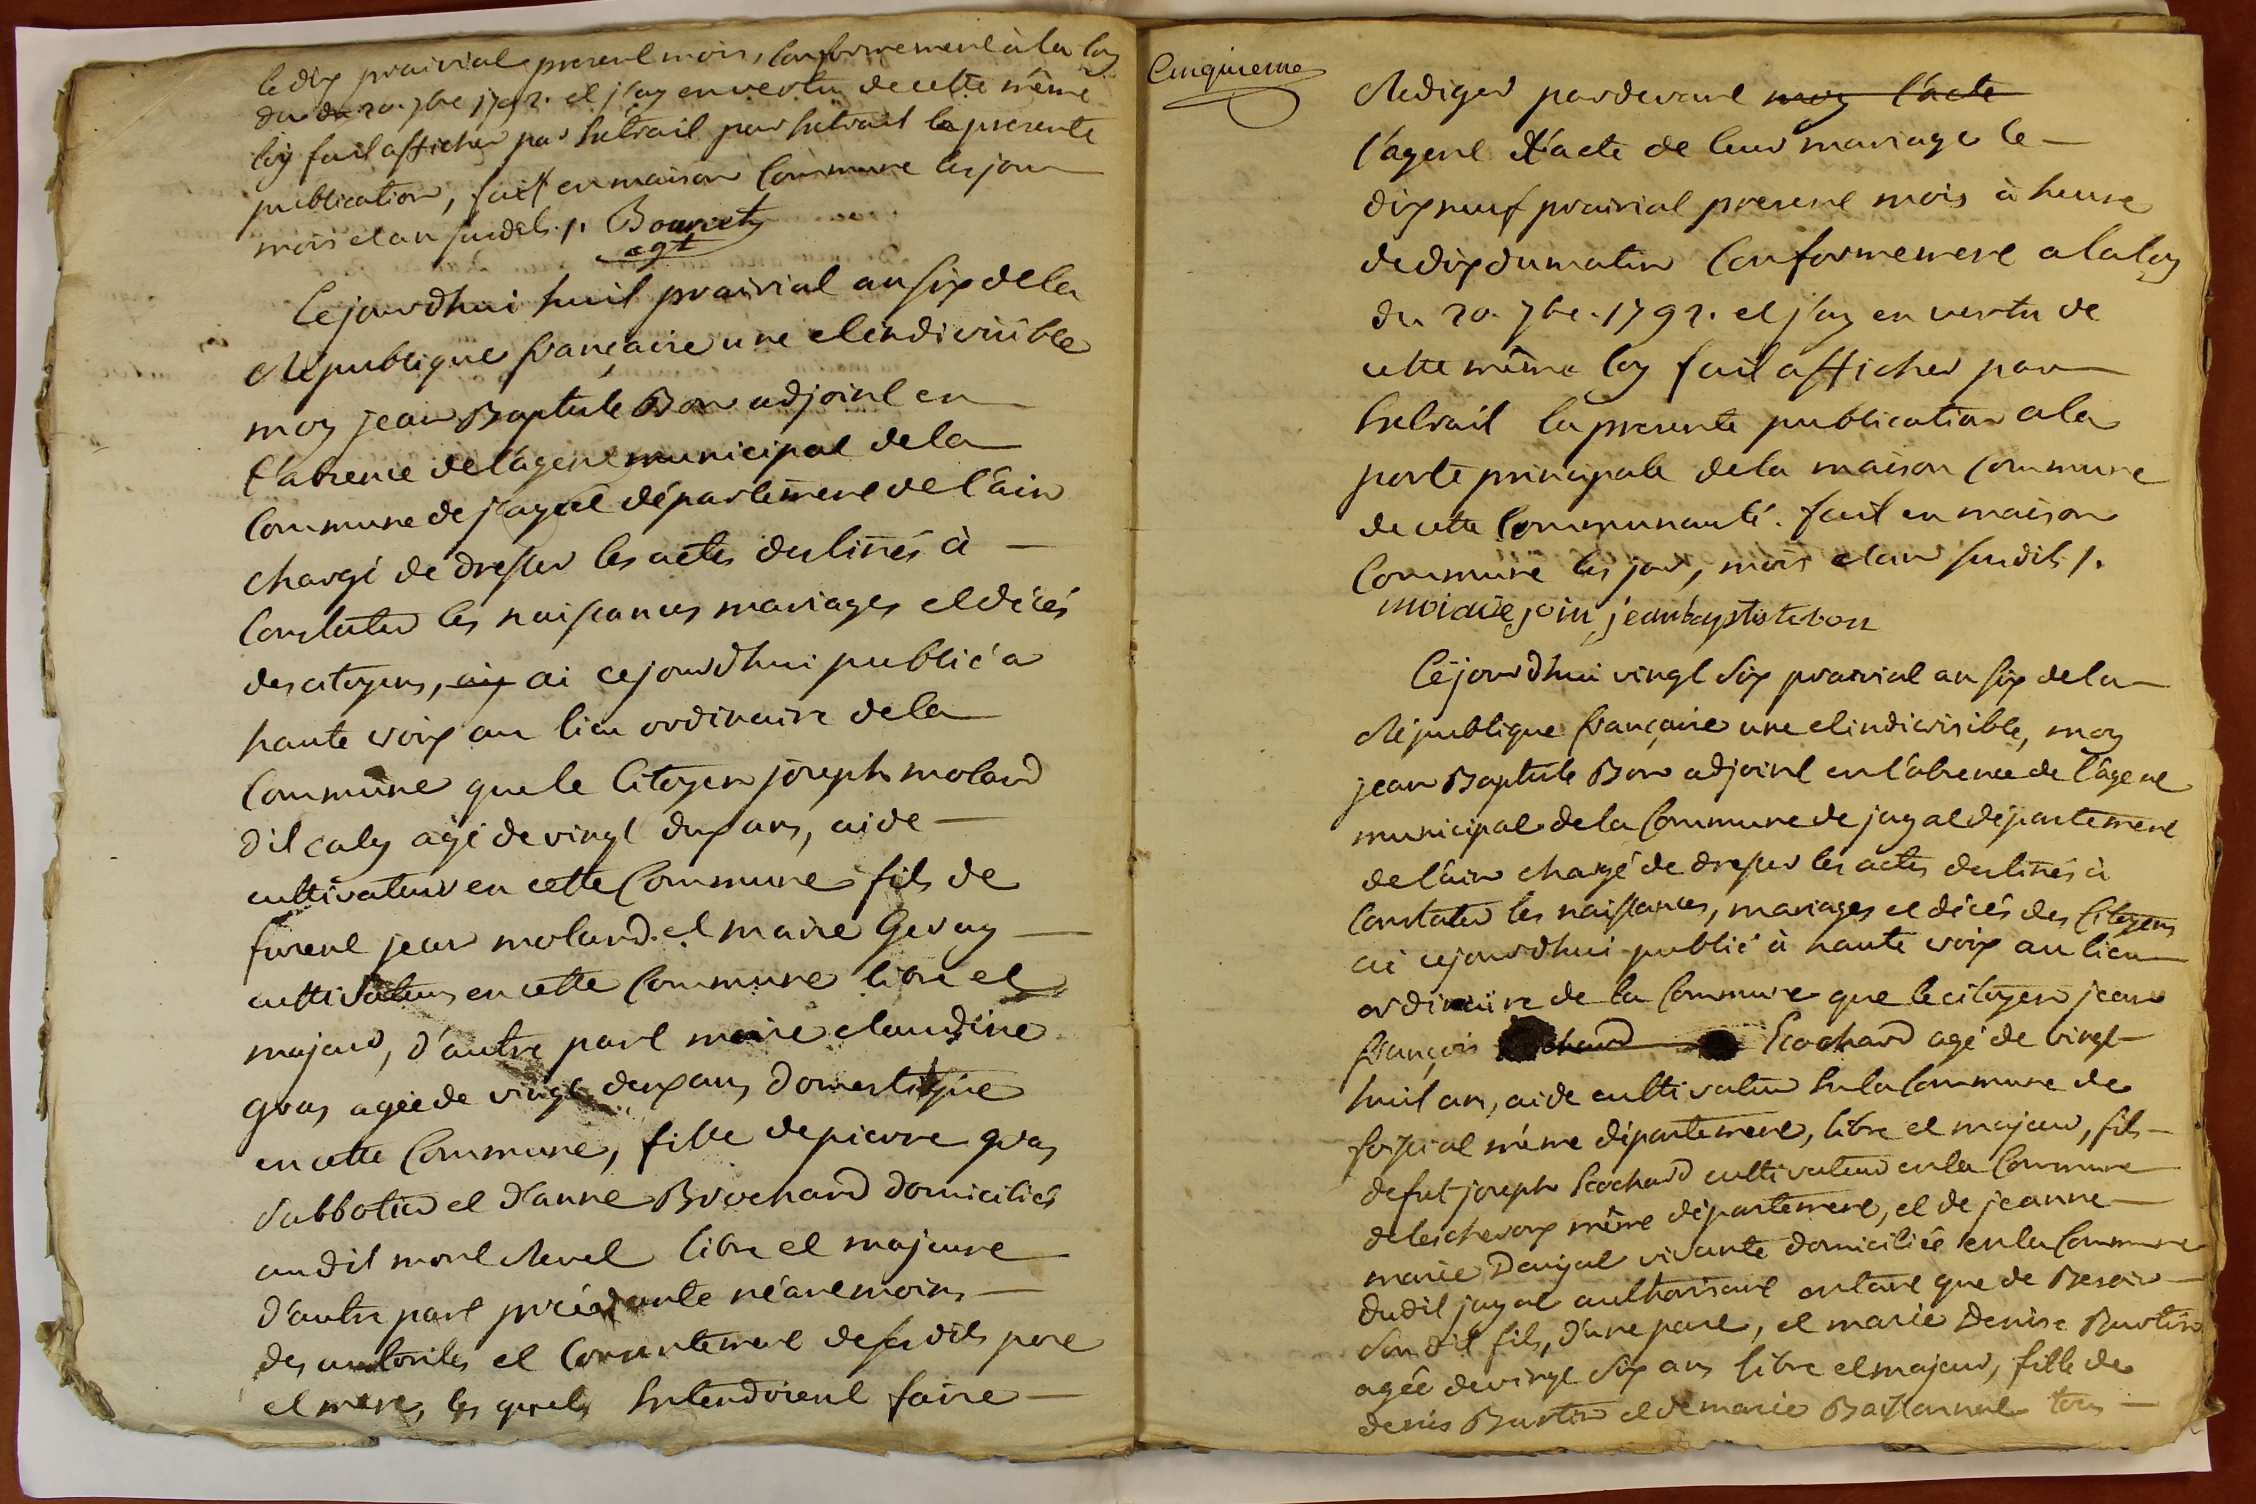 le dix prairial present mois, conformement à la loy
du du 20. 7bre 1792. et j'ay en vertu de cette même
loy fait afficher par Extrait par Extrait la presente
publication, fait en maison Commune les jour
mois et an susdits ./. Bourcet
agt
Cejourdhui huit prairial an six de la
République française une et indivisible
moy jean Baptiste Bon adjoint en
l'absence de l'agent municipal de la
Commune de jayat département de l'ain
chargé de dresser les actes destinés à
Constater les naissances mariages et décés
des citoyens, ai cejourdhui publié a
haute voix au lieu ordinaire de la
Commune que le Citoyen joseph moland
dit caly agé de vingt deux ans, aide
cultivateur en cette Commune fils de
furent jean moland et marie Gevay
cultivateurs en cette Commune libre et
majeur, d'autre part marie claudine
gras agée de vingt deux ans, domestique
en cette Commune, fille de pierre gras
Sabbotier et d'anne Brochard domiciliés
audit mont Revel libre et majeure
d'autre part procédante néanmoins
des autorités et Consentement de sesdits pere
et mere, les quels Entendoient faire
Cinquieme
Rediger pardevant moy l'acte
l'agent l'acte de leur mariage le
dix neuf prairial present mois à heure
de dix du matin Conformement a la loy
du 20. 7bre. 1792. et j'ay en vertu de
cette même loy fait afficher par
Extrait la presente publication a la
porte principale de la maison Commune
de cette Communauté. fait en maison
Commune les jour, mois et an susdits ./.
moi adejoin jeanbaptistebon
Cejourdhui vingt Six prairial an six de la
République française une et indivisible, moy
jean Baptiste Bon adjoint en l'absence de l'agent
municipal de la Commune de jayat département
de l'ain chargé de dresser les actes destinés à
Constater les naissances, mariages et décés des Citoyens
ai cejourdhui publié à haute voix au lieu
ordinaire de la Commune que le citoyen jean
françois Ecochard agé de vingt
huit ans, aide cultivateur En la Commune de
foissiat même département, libre et majeur, fils
de fut joseph Ecochard cultivateur en la Commune
de lescheroux même département, et de jeanne
marie Danjat vivante domiciliée en la Commune
dudit jayat authorisant entant que de Besoin
Son dit fils, d'une part, et marie Denise Burtin
agée de vingt Six ans libre et majeur, fille de
denis Burtin et de marie tous